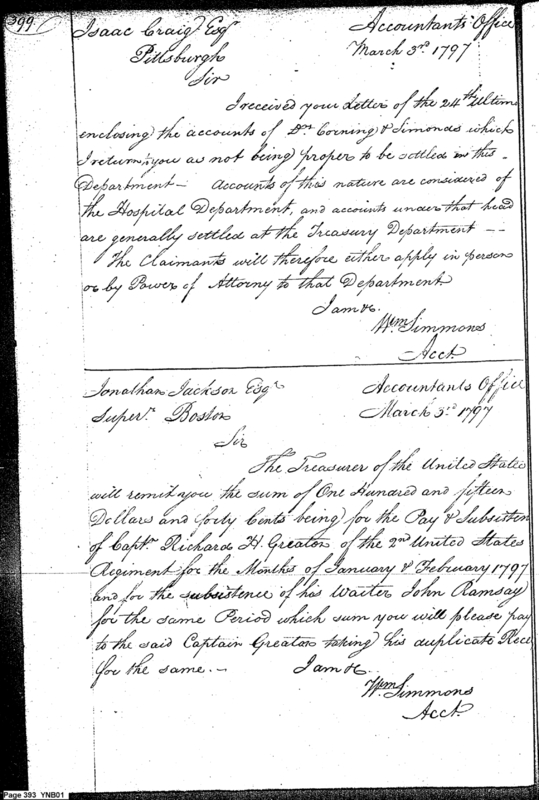 399
Isaac Craig Esqr Accountants Office
Pittsburgh March 3rd 1797
Sir
I received your Letter of the 24th Ultimo
enclosing the accounts of Drs Corning & Simonds which
I return you as not being proper to be settled in this
Department — Accounts of this nature are considered of
the Hospital Department, and accounts under that head
are generally settled at the Treasury Department —
The Claimants will therefore either apply in person
or by Power of Attorny to that Department
I am &c.
Wm Simmons
Acct.
Jonathan Jackson Esqr Accountants Office
Superr. Boston March 3rd 1797
Sir
The Treasurer of the United States
will remit you the sum of One Hundred and fifteen
Dollars and forty Cents being for the Pay & Subsisten
of Captn. Richard H. Greaton of the 2nd United States
Regiment for the Months of January & February 1797
and for the subsistence of his Waiter John Ramsay
for the same Period which sum you will please pay
to the said Captain Greaton taking his duplicate Rece
for the same. — I am &c.
Wm Simmons
Acct.
Page 393 YNB01